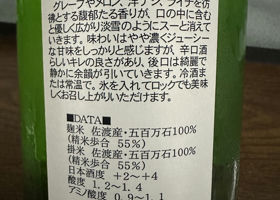 グレープやメロン、洋ナシ、ライチを彷
彿とする馥郁たる香りが、口の中に含む
と優しく広がり淡雪のようにスーと消えて
いきます。味わいはやや濃くジューシー
な甘味をしっかりと感じますが、辛口酒
らしいキレの良さがあり、後口は綺麗で
静かに余韻が引いていきます。冷酒ま
たは常温で。氷を入れてロックでも美味
しくお召し上がりいただけます。
■DATA■
麹米 佐渡産・五百万石100%
(精米歩合 55%)
掛米 佐渡産・五百万石100%
(精米歩合 55%)
日本酒度 +2~+4
酸度 1.2~1.4
アミノ酸度 0.9~1.1